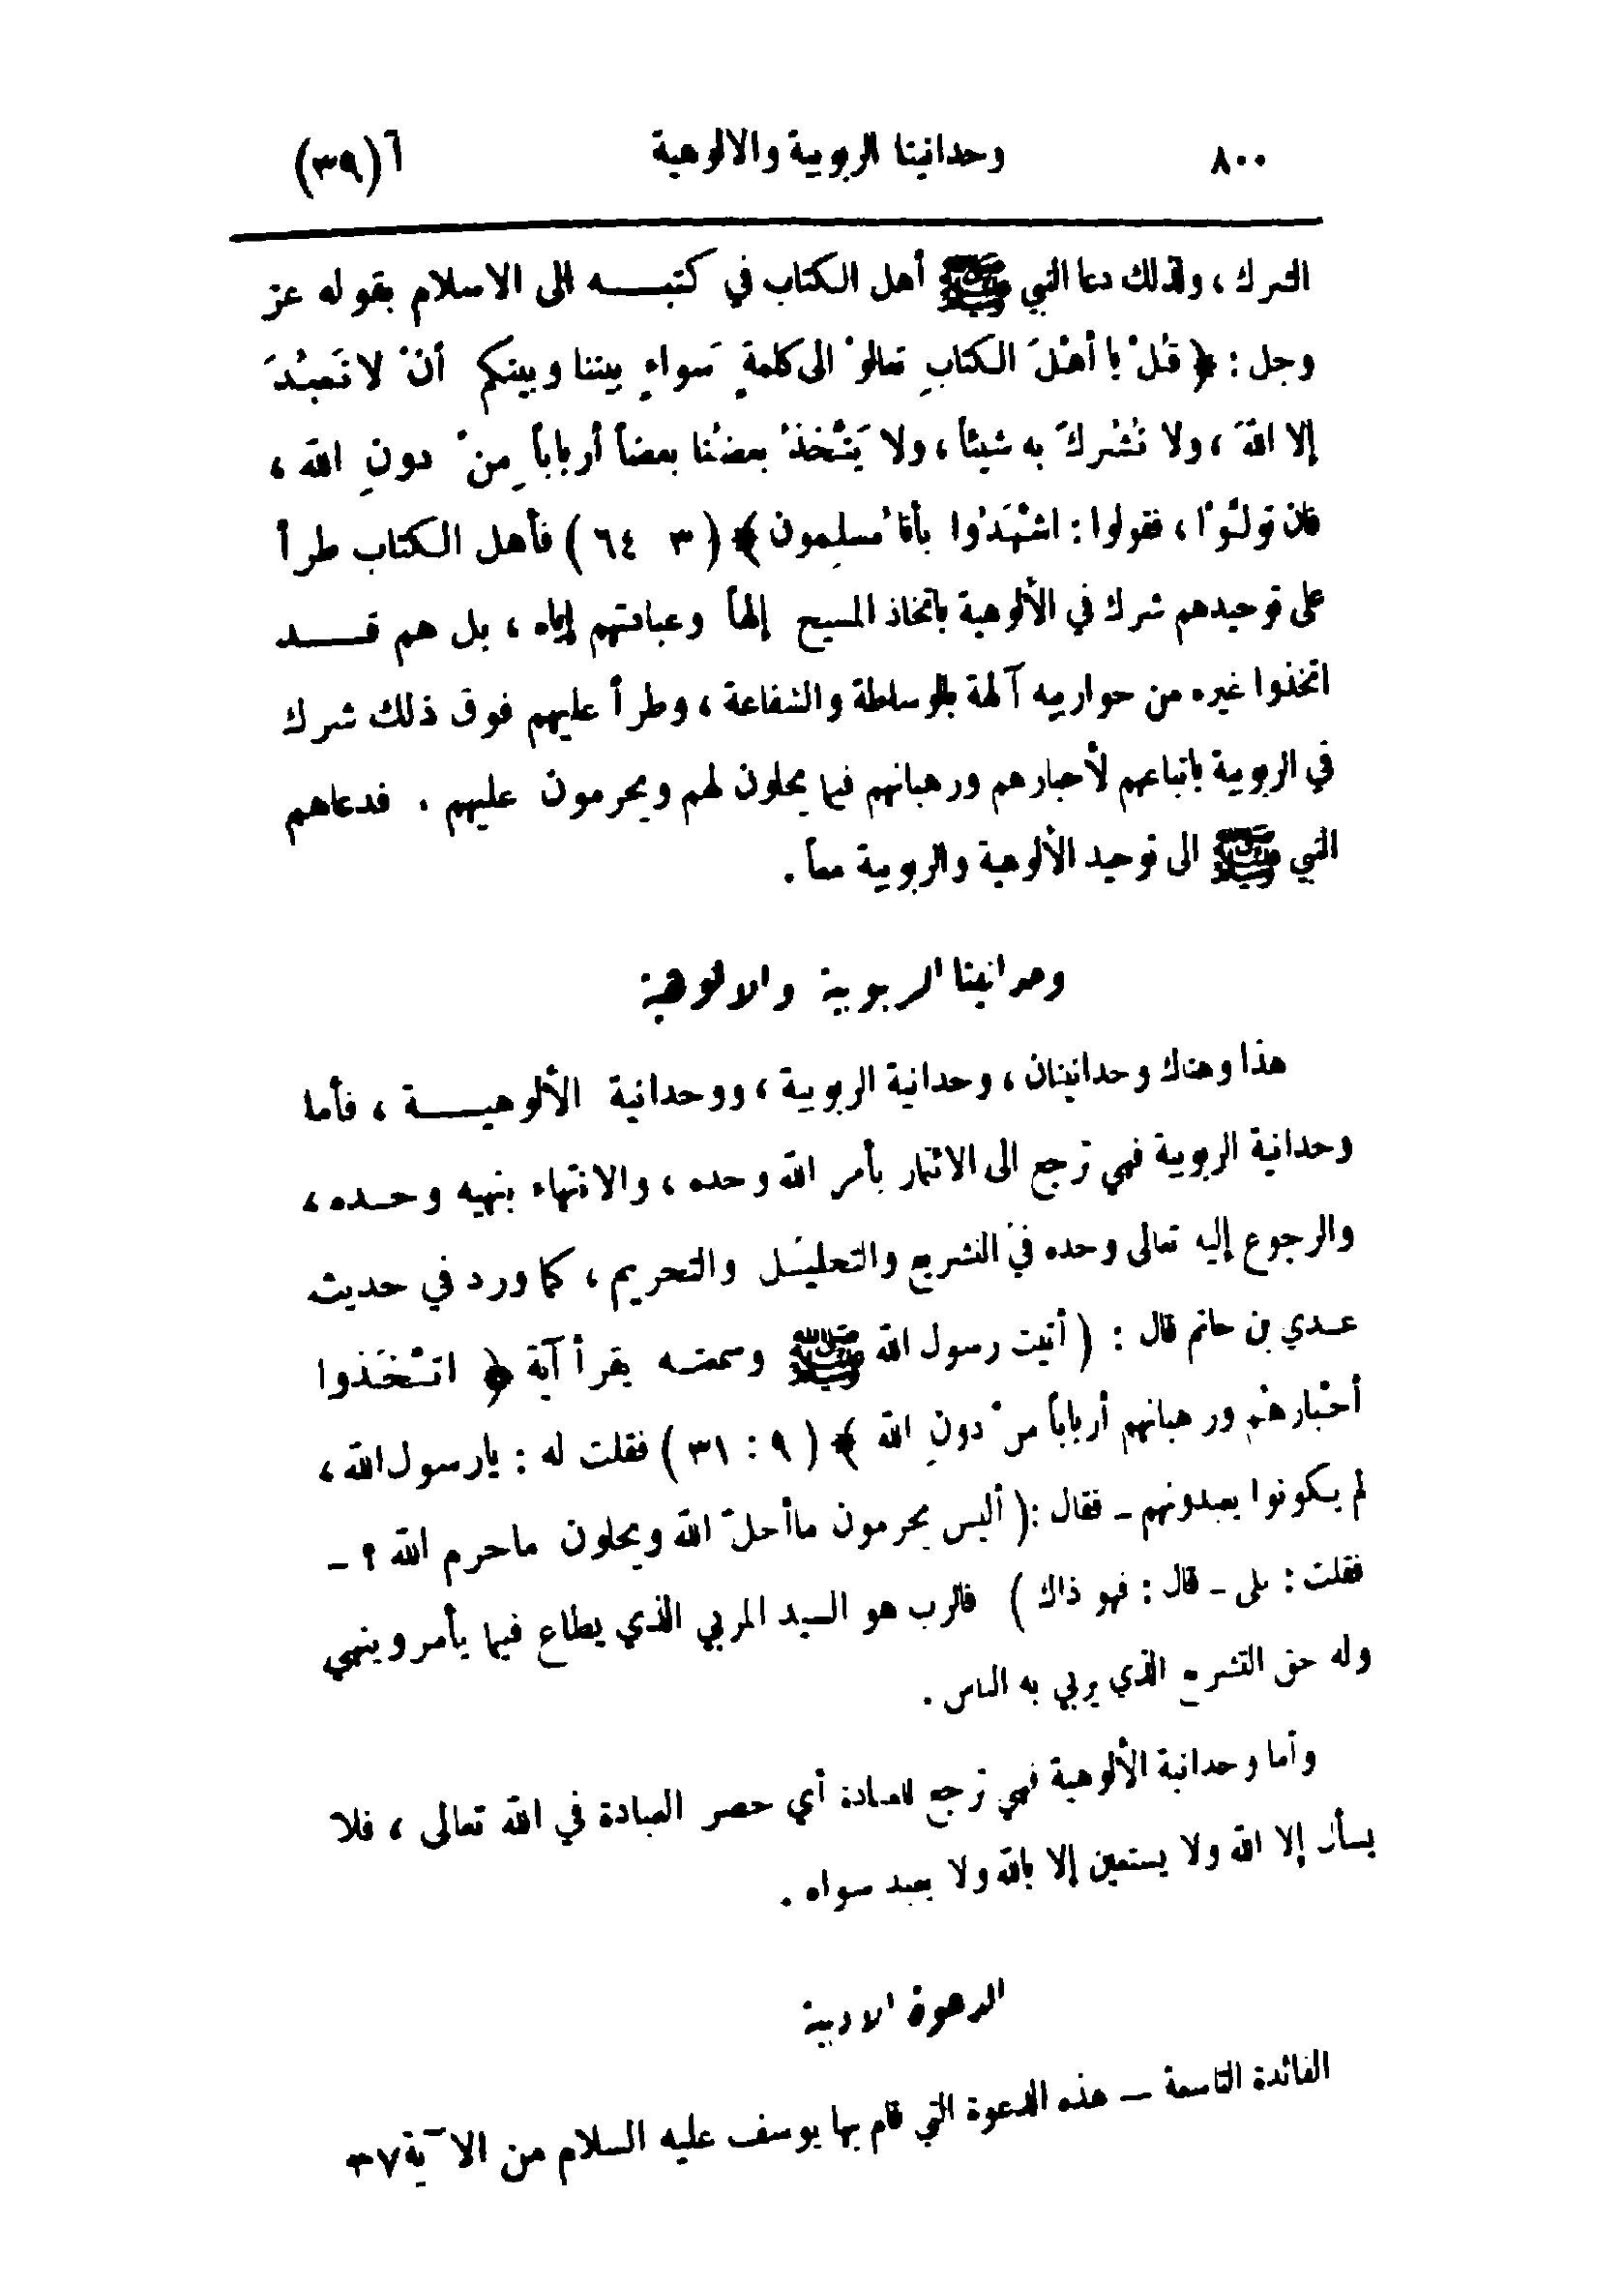 ٨٠٠ وحدانيتا الربوبية والالوهية آ(٣٩)
الشرك ، ولذلك دعا النبي ﷺ أهل الكتاب في كتبـــه الى الاسلام بقوله عز
وجل : ﴿ قُلْ يا أهْلَ الكتابِ تعالوْا الى كلمةٍ سَواءٍ بيننا وبينكم أنْ لا نَعبُدَ
إلا اللهَ ، ولا نُشْركَ به شيئاً ، ولا يَتَّخذْ بعضُنا بعضاً أرباباً مِنْ دونِ الله ،
فان تولَّوْا ، فقولوا : اشْهَدُوا بأنا مُسلِمون ﴾ ( ٣ ٦٤ ) فأهل الكتاب طرأ
على توحيدهم شرك في الألوهية باتخاذ المسيح إلهاً وعبادتهم إياه ، بل هم قـــد
اتخذوا غيره من حوارييه آلهة بالوساطة والشفاعة ، وطرأ عليهم فوق ذلك شرك
في الربوبية باتباعهم لأحبارهم ورهبانهم فيما يحلون لهم ويحرمون عليهم . فدعاهم
النبي ﷺ الى توحيد الألوهية والربوبية معاً .
وحدانيتا الربوبية والالوهية
هذا وهناك وحدانيتان ، وحدانية الربوبية ، ووحدانية الألوهيـــة ، فأما
وحدانية الربوبية فهي ترجع الى الائتمار بأمر الله وحده ، والانتهاء بنهيه وحـده ،
والرجوع إليه تعالى وحده في التشريع والتحليل والتحريم ، كما ورد في حديث
عـدي بن حاتم قال : ( أتيت رسول الله ﷺ وسمعتـه يقرأ آية ﴿ اتَّخَذوا
أحْبارهْم ورهبانهم أرباباً منْ دونِ الله ﴾ ( ٩ : ٣١ ) فقلت له : يارسول الله ،
لم يكونوا يعبدونهم ـ فقال :( أليس يحرمون ماأحلّ الله ويحلون ماحرم الله ؟ ـ
فقلت : بلى ـ قال : فهو ذاك ) فالرب هو السيد المربي الذي يطاع فيما يأمر وينهي
وله حق التشريع الذي يربي به الناس .
وأما وحدانية الألوهية فهي ترجع للعبادة أي حصر العبادة في الله تعالى ، فلا
يسأل إلا الله ولا يستعين إلا بالله ولا يعبد سواه .
الدعوة الادبية
الفائدة التاسعة — هذه الدعوة التي قام بها يوسف عليه السلام من الآية ٣٧